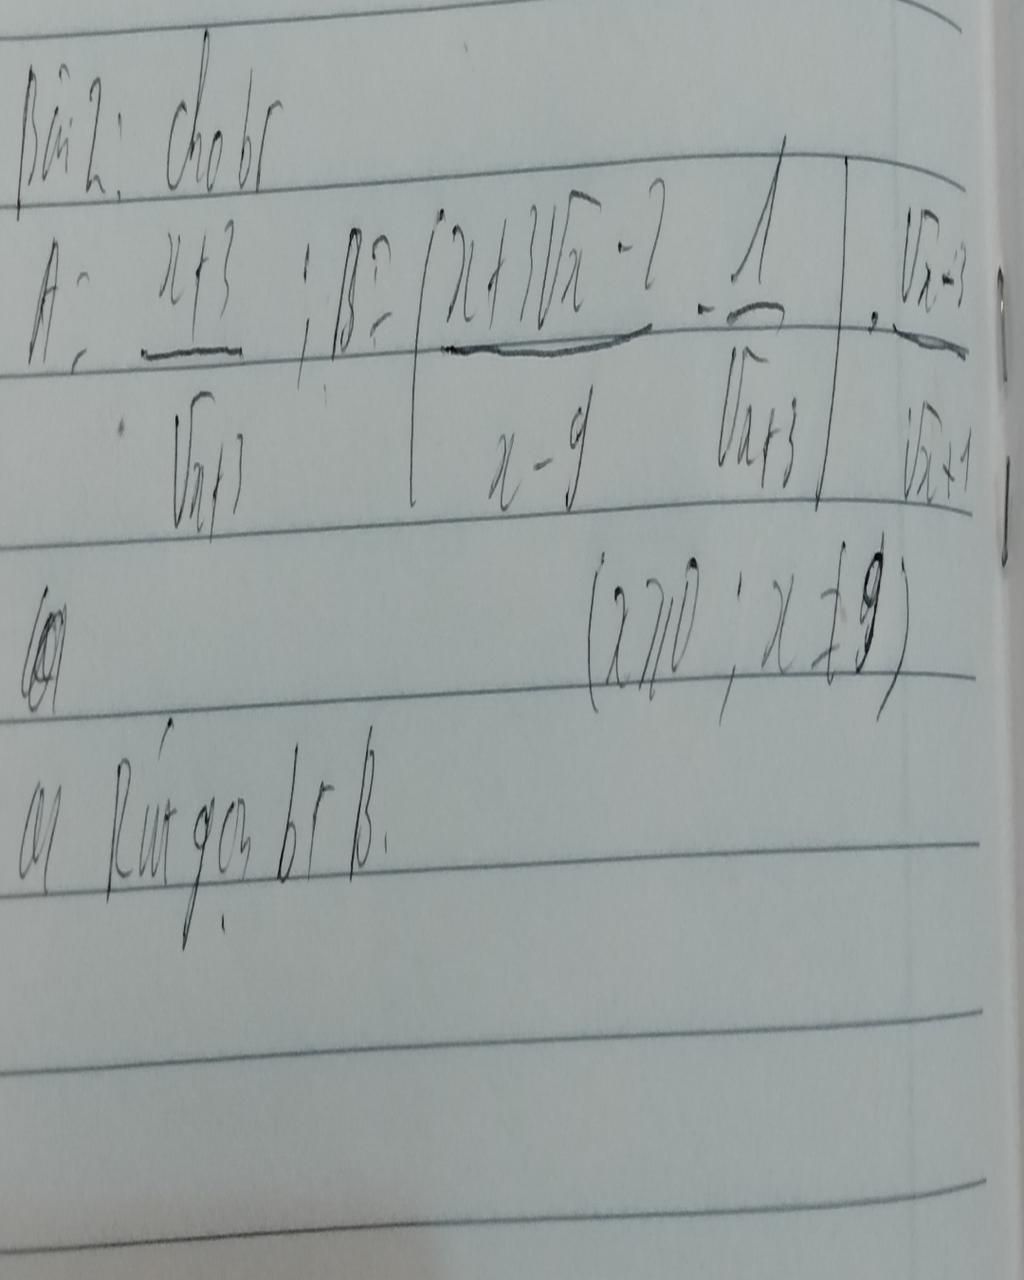 Bài 2: cho bt
A = x+3 / √x+3 ; B = ( x+3√x - 2 / x - 9 - 1 / √x+3 ) . √x-3 / √x+1
(x ⩾ 0 ; x ≠ 9)
a) Rút gọn bt B.